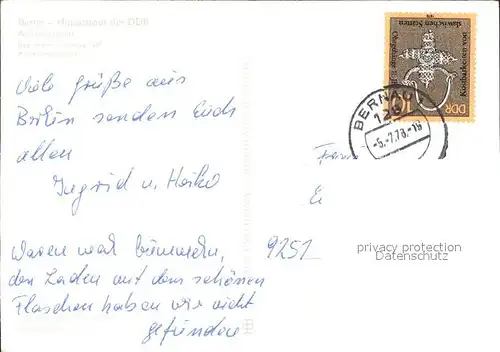 Berlin – Hauptstadt der DDR
Viele Grüße aus
Berlin senden Euch
allen
Ingrid u. Heiko
Waren mal bummeln,
den Laden mit dem schönen
Flaschen haben wir nicht
gefunden
Kostbarkeiten von
slawischen Stätten
10
DDR
BERNAU
128
-5.-7.78.-16
Fam
9251
privacy protection
Datenschutz